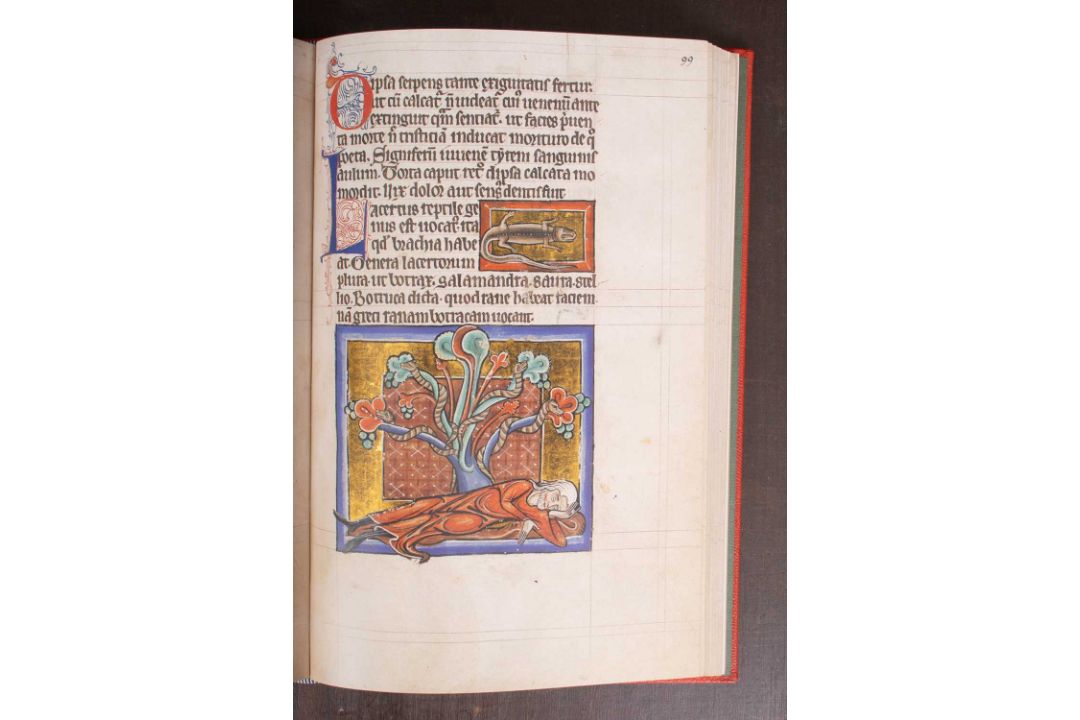 99
Dipsa serpens tante exiguitatis fertur
ut cū calcat᷑ n̄ uideat᷑ cui᷒ uenenū ante
extinguit qm̄ sentiat᷑. ut facies p̄uen
ta morte n̄ tristiciā inducat morituro de q᷒
poeta. Signiferū iuuenē tyreni sanguinis
aulum. Torta caput ret᷒ dipsa calcata mo
mordit. Uix dolor aut sens᷒ dentis fuit
Lacertus reptile ge
nus est uocat᷒ ita
qd̓ brachia habe
at. Genera lacertorum
plura. ut botrax. salamandra. saura. stel
lio. Botruca dicta. quod rane habeat faciem
nā greci ranam botracam uocant.